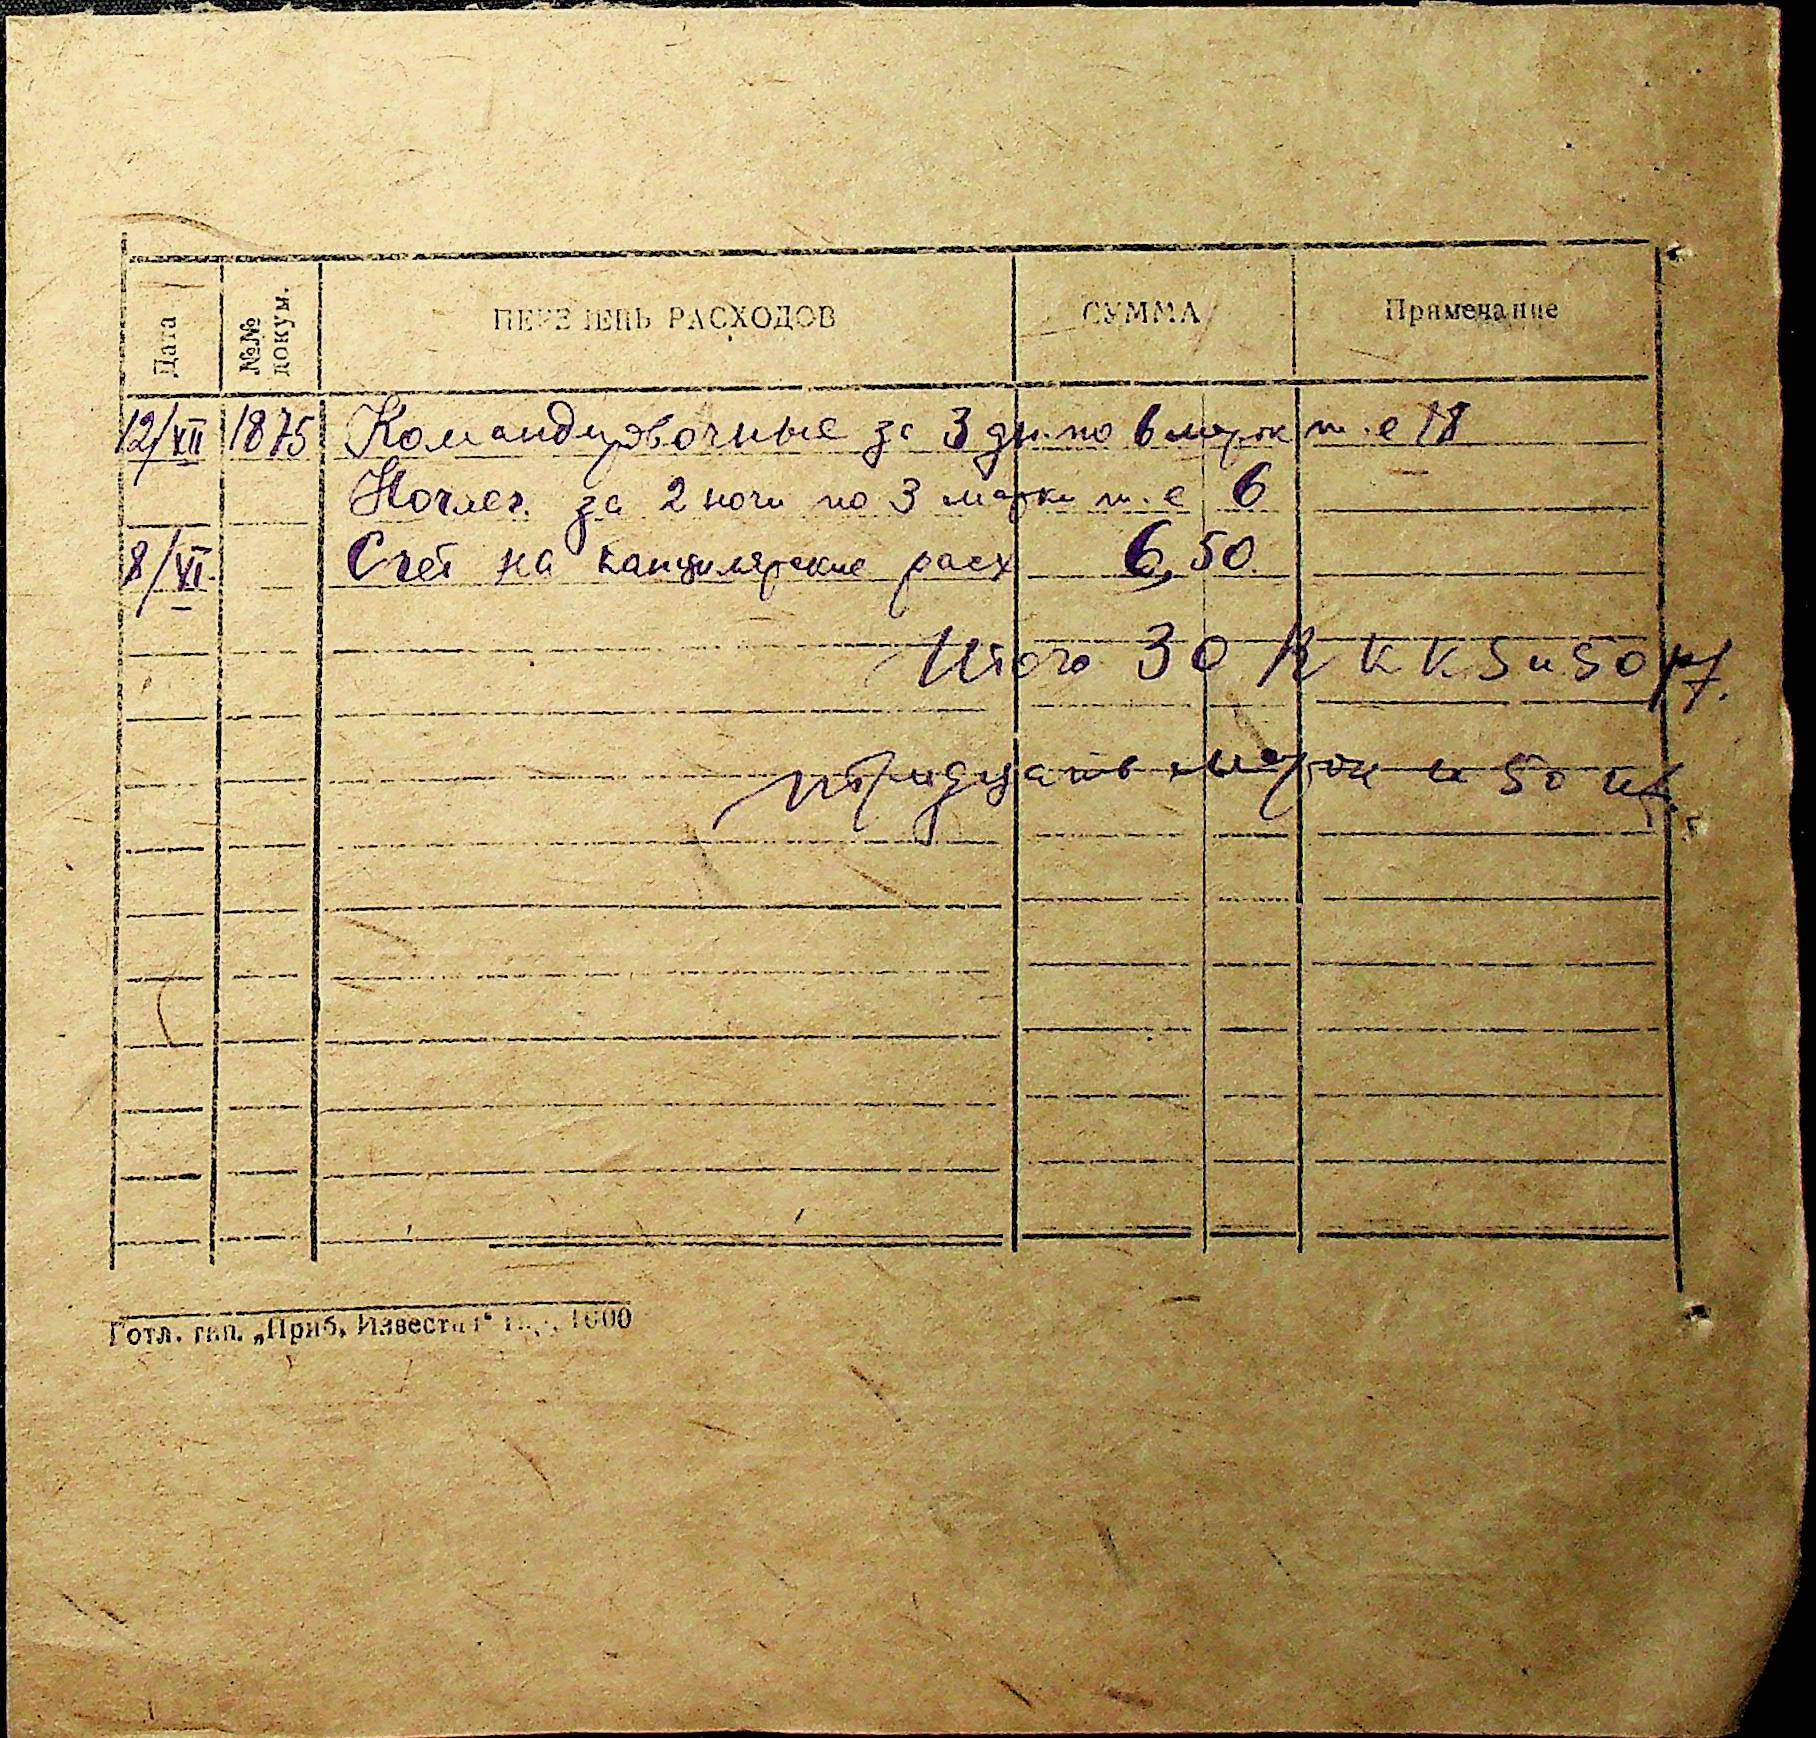 Дата №№ докум. ПЕРЕЧЕНЬ РАСХОДОВ СУММА Примечание
12/XII 1875 Командировочные за 3 дн. по 6 марок т. е 18
Ночлег. за 2 ночи по 3 марки т. е 6
8/XI. Счет на канцилярские расх 6,50
Итого 30 R K K S и 50 pf.
тридцать марок и 50 пф.
Готл. тип. „Приб. Известия“ 1000